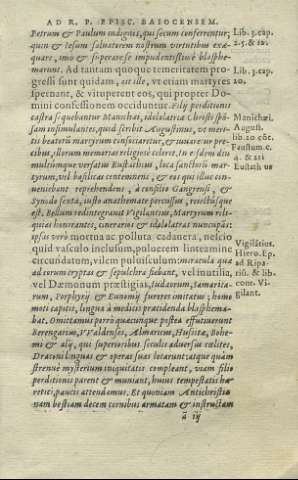 AD R. P. EPISC. BASOCENSEM.
Petrum & Paulum indignis, qui secum conferrentur;
quin & Iesum saluatorem nostrum virtutibus exæ-
quare, imo & se præferre impudentissimè blasphe-
marunt. Ad tantam quoque temeritatem pro-
gressi sunt quidam, ait ille, vt etiam martyres
spernant, & vituperent eos, qui propter Do-
mini confessionem occiduntur. Filij perditionis
castra sequebantur Manichæi, idololatrica Christi spō-
sam insimulantes, quod scribit Augustinus, vt meri-
tis beatorū martyrum consociaretur, & iuuaretur pre-
cibus, illorum memorias religiosè coleret. In eisdem diu
multúmque versatus Eustathius, loca sanctorū mar-
tyrum, vel basilicas contemnens, & eos qui illuc con-
ueniebant reprehendens, à concilio Gangrensi, &
Synodo sexta, iusto anathemate percussus, reiectúsque
est. Bellum redintegrauit Vigilantius, Martyrum reli-
quias honorantes, cinerarios & idololatras nuncupās:
ipse verò mortua ac polluta cadauera, nescio
quid vasculo inclusum, puluerem linteamine
circundatum, vilem puluisculum: miracula quæ
ad eorum cryptas & sepulchra fiebant, vel inutilia,
vel Dæmonum præstigias, Iudæorum, Samarita-
rum, Porphyrij & Eunomij furores imitatus; homo
moti capitis, lingua à medicis præcidenda blasphema-
bat. Omittamus porrò quæcunque postea effutiuerunt
Berengarium, VValdenses, Almaricum, Hussitæ, Bohe-
mi & alij, qui superioribus seculis aduersus cœlites,
Draconi linguas & operas suas locarunt: atque quàm
strenuè mysterium iniquitatis compleant, viam filio
perditionis parent & muniant, huius tempestatis hæ-
retici, paucis attendemus. Et quoniam Antichristia
nam bestiam decem cornibus armatam & instructam
ã iij
Lib. 3. cap.
2. 5. & 12.
Lib. 3. cap.
20.
Manichæi.
August.
lib. 20 cōt.
Faustum c.
4. & 21
Eustathius
Vigilātius.
Hiero. Ep.
ad Ripa-
riū. & lib.
cont. Vi-
gilant.